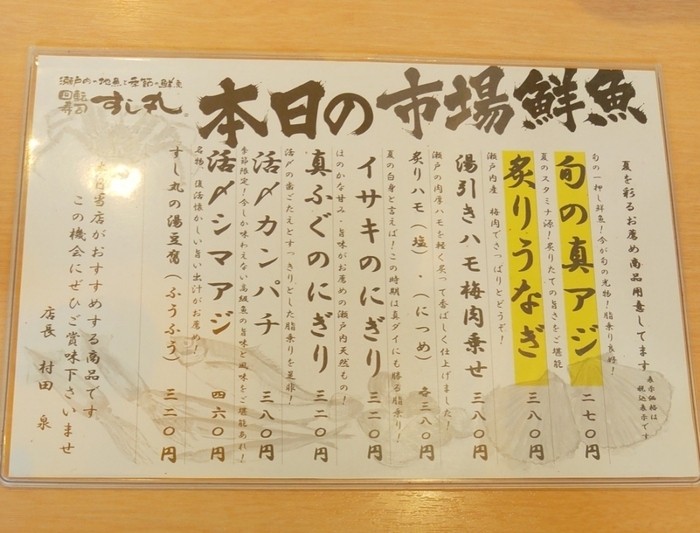 瀬戸内の地魚と季節の鮮魚
回転寿司 すし丸
本日の市場鮮魚
夏を彩るお薦め商品用意してます
表示価格は
税込表示です
旬の一押し鮮魚!今が旬の光物!脂乗り良好!
旬の真アジ 二七〇円
夏のスタミナ源!炙りたての旨さをご堪能
炙りうなぎ 三八〇円
瀬戸内産 梅肉でさっぱりとどうぞ!
湯引きハモ梅肉乗せ 三八〇円
瀬戸の肉厚ハモを軽く炙って香ばしく仕上げました!
炙りハモ(塩)・(につめ) 各三八〇円
夏の白身と言えば!この時期は真ダイにも勝る脂乗り!
イサキのにぎり 三二〇円
ほのかな甘み・旨味がお薦めの瀬戸内天然もの!
真ふぐのにぎり 三二〇円
活〆の歯ごたえとすっきりとした脂乗りを是非!
活〆カンパチ 三八〇円
季節限定!今しか味わえない高級魚の旨味と風味をご堪能あれ!
活〆シマアジ 四六〇円
名物・復活懐かしい旨い出汁がお薦め!
すし丸の湯豆腐(ふうふう) 三二〇円
当店がおすすめする商品です
この機会にぜひご賞味下さいませ
店長 村田 泉